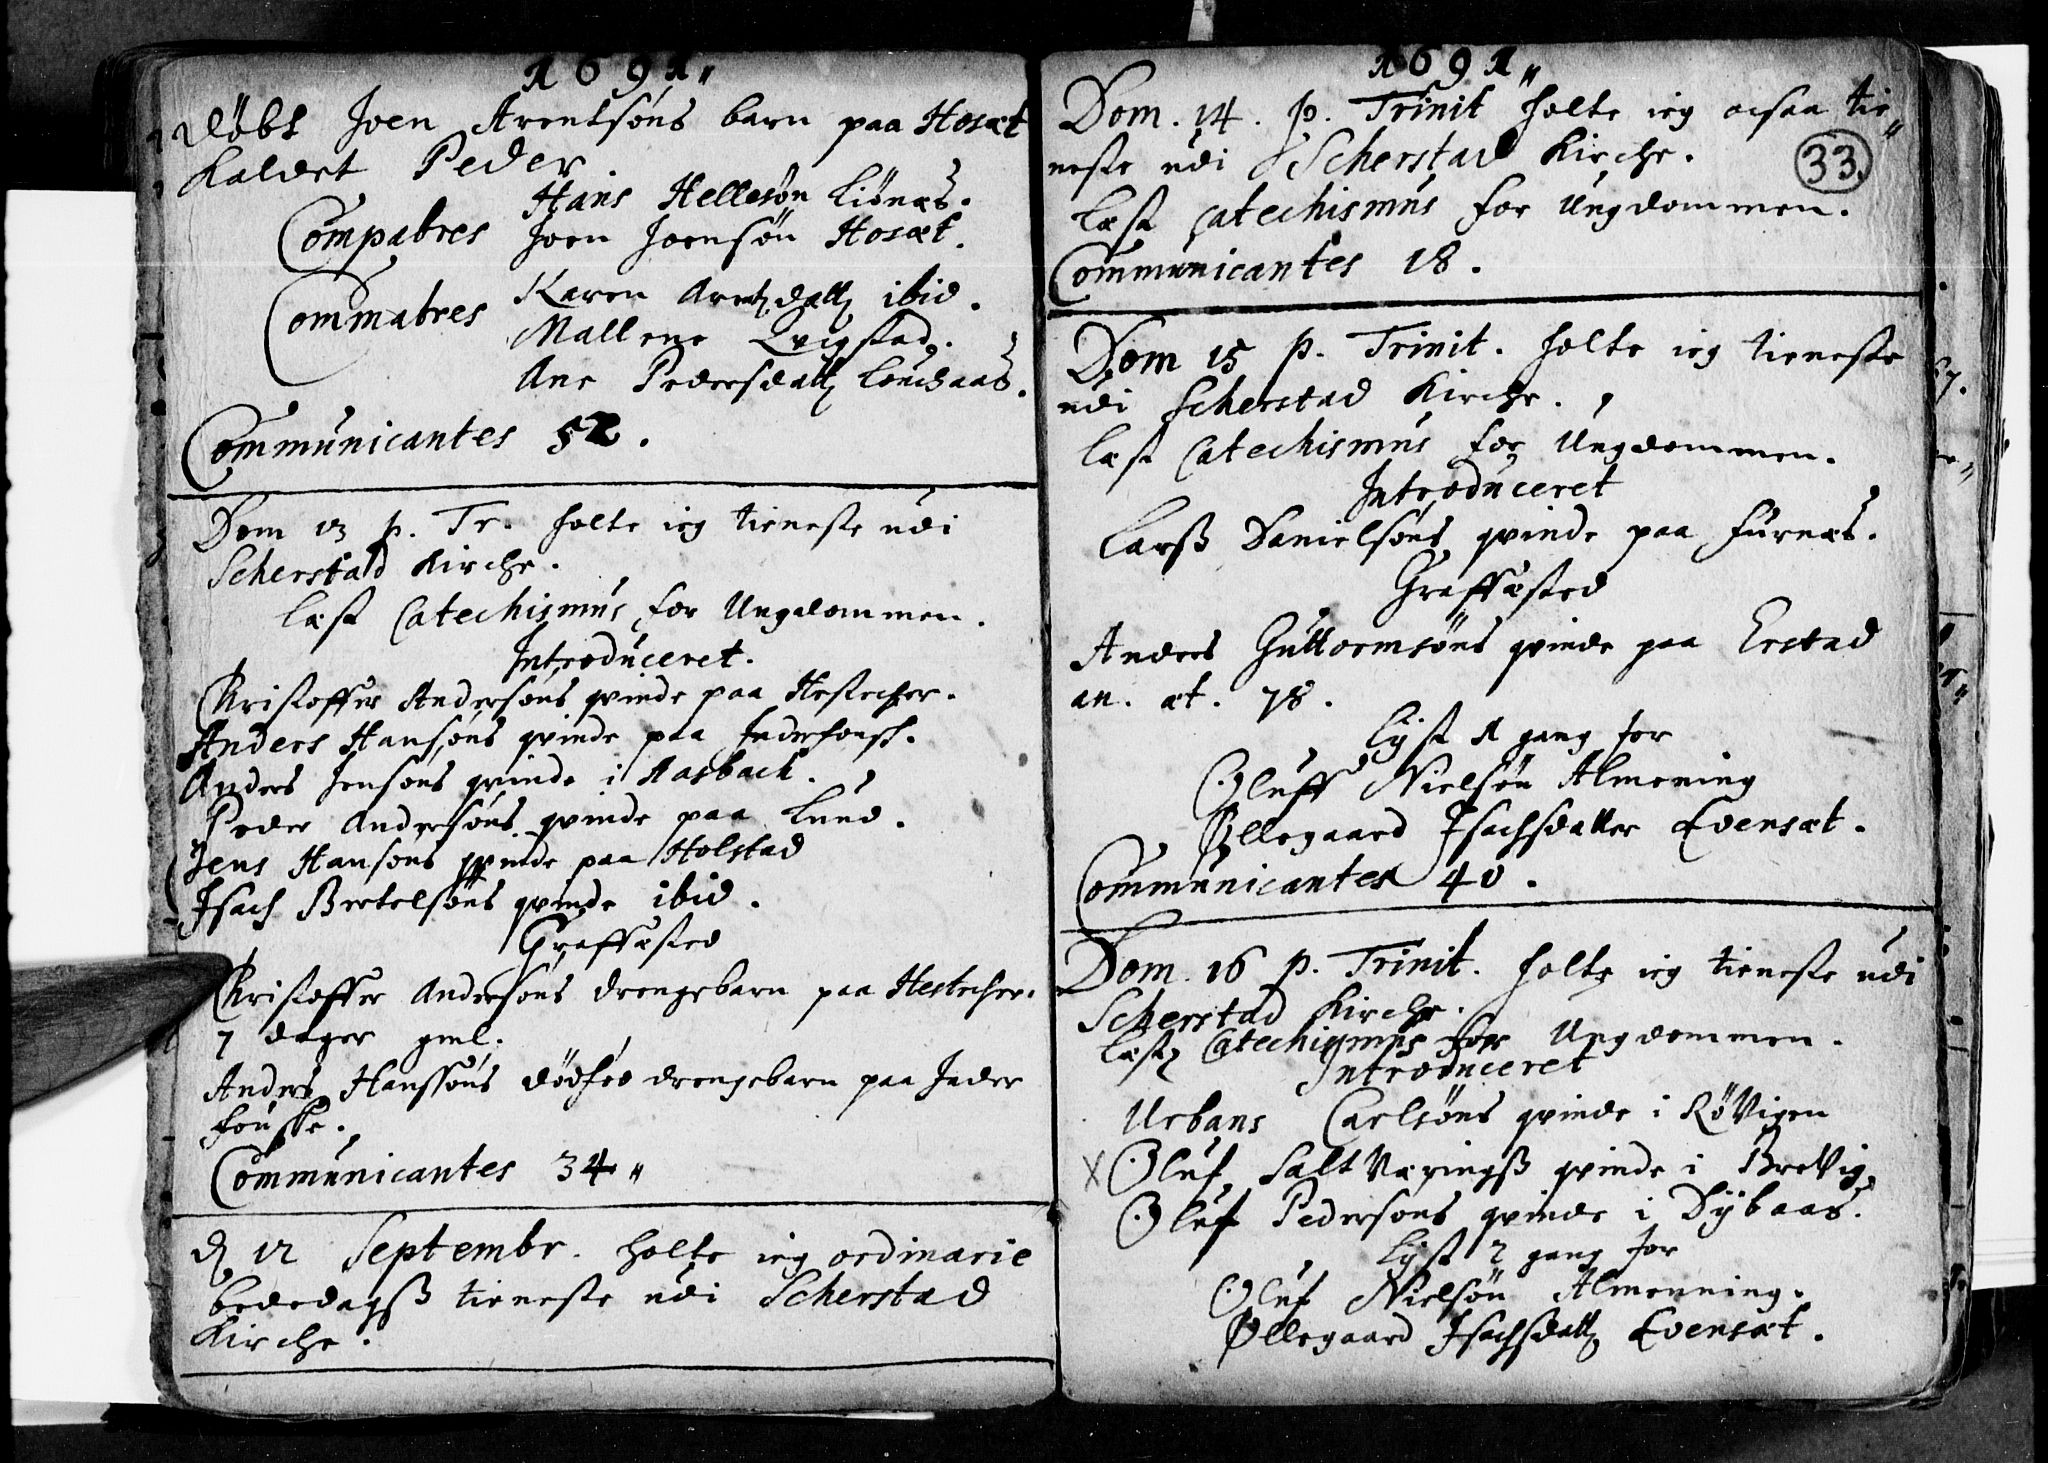 1691"
Døbt Joen Arentsøns barn paa Hosæt
kaldet Peder
Hans Hellesøn Liønæs.
Compabres Joen Joensøn Hosæt.
Commabres Karen Arentzdatt ibid.
Mallene Lvigstad.
Ane Pedersdatt
Communicantes 52.
Dom 13 p. Tr. holte ieg tieneste udi
Scherstad Kirche.
læst Catechismus for Ungdommen.
Introduceret.
Christoffer Andersøns qvinde paa
Anders Hansøns qvinde paa Inderfousk.
Anders Jensøns qvinde i Aasbach.
Peder Andersøns qvinde paa Lund.
Jens Hansøns qvinde paa Holstad
Isach Bertelsøns qvinde ibid.
Graffæsted
Christoffer Andersøns drengebarn paa
7 dager gml.
Anders Hanssøns dødfød drengebarn paa Inder
fouske.
Communicantes 34"
D 12 Septembr. holte ieg ordinarie
bededagsß tieneste udi Scherstad
Kirche.
1691"
Dom. 14. p. Trinit holte ieg ocsaa tie"
neste udi Scherstad Kirche.
33.
læst Catechismus for Ungdommen.
Communicantes 18.
Dom 15 p. Trinit. holte ieg tieneste
udi Scherstad Kirche.
læst Catechismus for Ungdommen.
Introduceret
Larß Danielsøns qvinde paa Furnæs.
Graffæsted
Anders Guttormsøns qvinde paa Erstad
an. æt. 78.
Lyst 1 gang for
Oluff Nielsøn Almening
Øllegaard Isachsdatter Evensæt.
Communicantes 40.
Dom. 16 p. Trinit. holte ieg tieneste udi
Scherstad Kirche.
læst Catechismus for Ungdommen.
Introduceret
Urbans Carlsøns qvinde i Røvigen
X Oluf Saltværingß qvinde i Brevig
Oluf Pedersøns qvinde i Dybaas.
Lyst 2 gang for
Oluf Nielsøn Almenning.
Øllegaard Isachsdatt Evensæt.